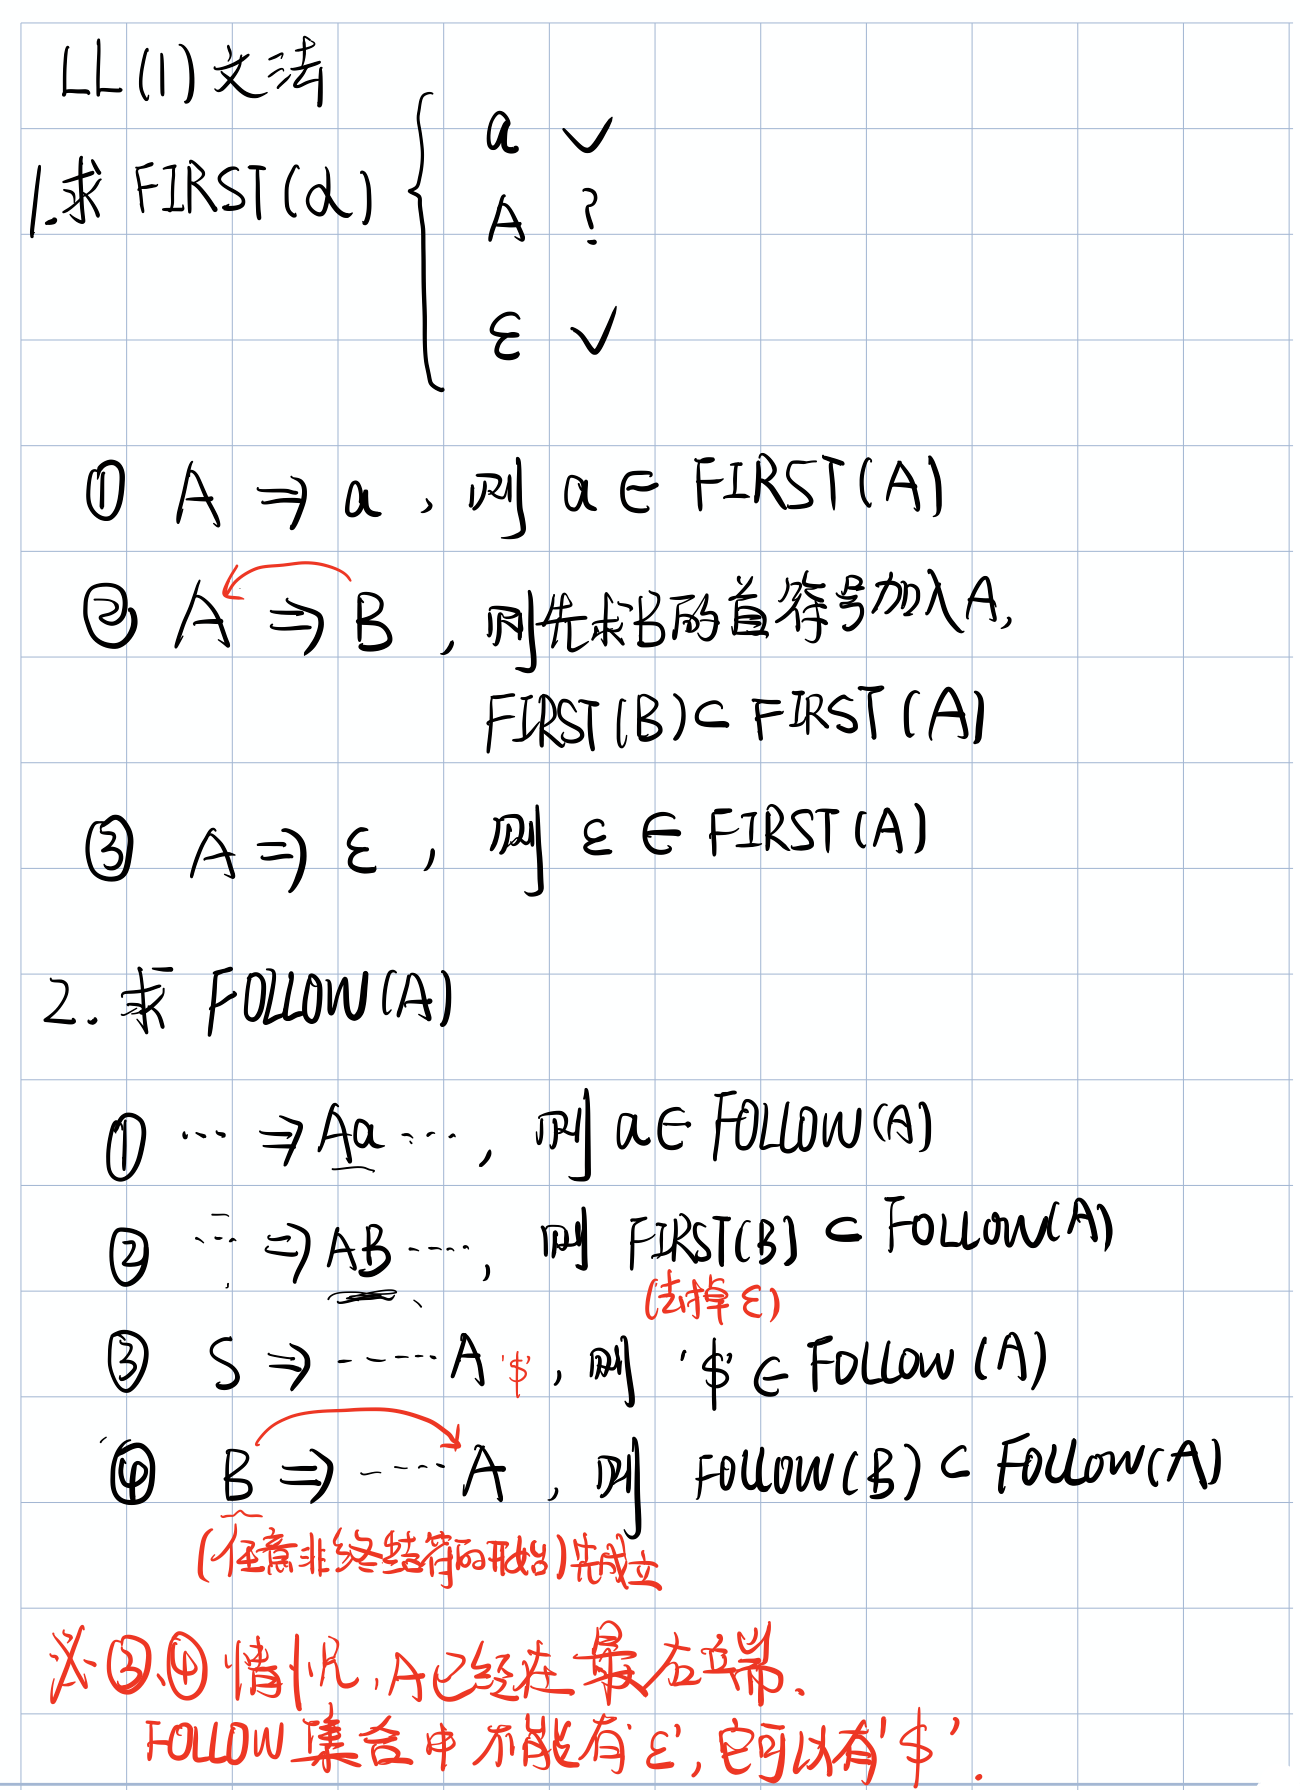 LL(1)文法
1.求 FIRST(α) { a ✓
A ?
ε ✓
① A ⇒ a , 则 a ∈ FIRST(A)
② A ⇒ B , 则先求B的首符号加入A,
FIRST(B) ⊂ FIRST(A)
③ A ⇒ ε , 则 ε ∈ FIRST(A)
2. 求 FOLLOW(A)
① ... ⇒ Aa ..., 则 a ∈ FOLLOW(A)
② ... ⇒ AB ...., 则 FIRST(B) ⊂ FOLLOW(A)
(去掉 ε)
③ S ⇒ ...... A '$' , 则 '$' ∈ FOLLOW(A)
④ B ⇒ ..... A , 则 FOLLOW(B) ⊂ FOLLOW(A)
(任意非终结符的开始)先成立
※③、④情况,A已经在最右端.
FOLLOW集合中不能有'ε',它可以有'$'.